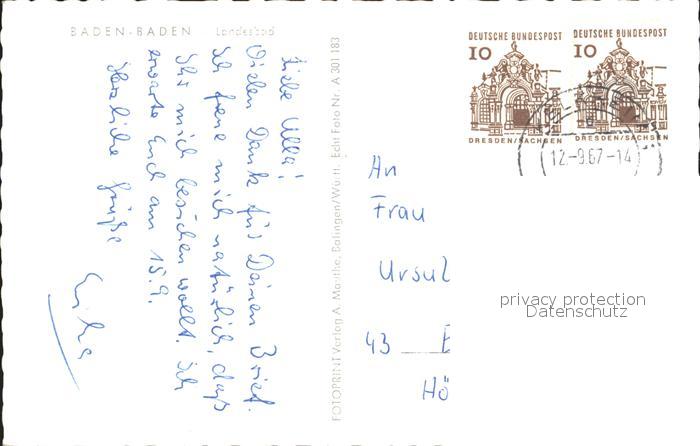 BADEN-BADEN Landesbad
Liebe Ulla!
Vielen Dank für Deinen Brief.
Ich freue mich natürlich, daß
Ihr mich besuchen wollt. Ich
erwarte Euch am 15.9.
Herzliche Grüße
FOTOPRINT Verlag A. Manthe, Balingen/Württ. Echt Foto Nr. A 301 183
DEUTSCHE BUNDESPOST DEUTSCHE BUNDESPOST
10 10
DRESDEN/SACHSEN DRESDEN/SACHSEN
12.-9.67-14
An
Frau
Ursul
43 E
Hö
privacy protection
Datenschutz